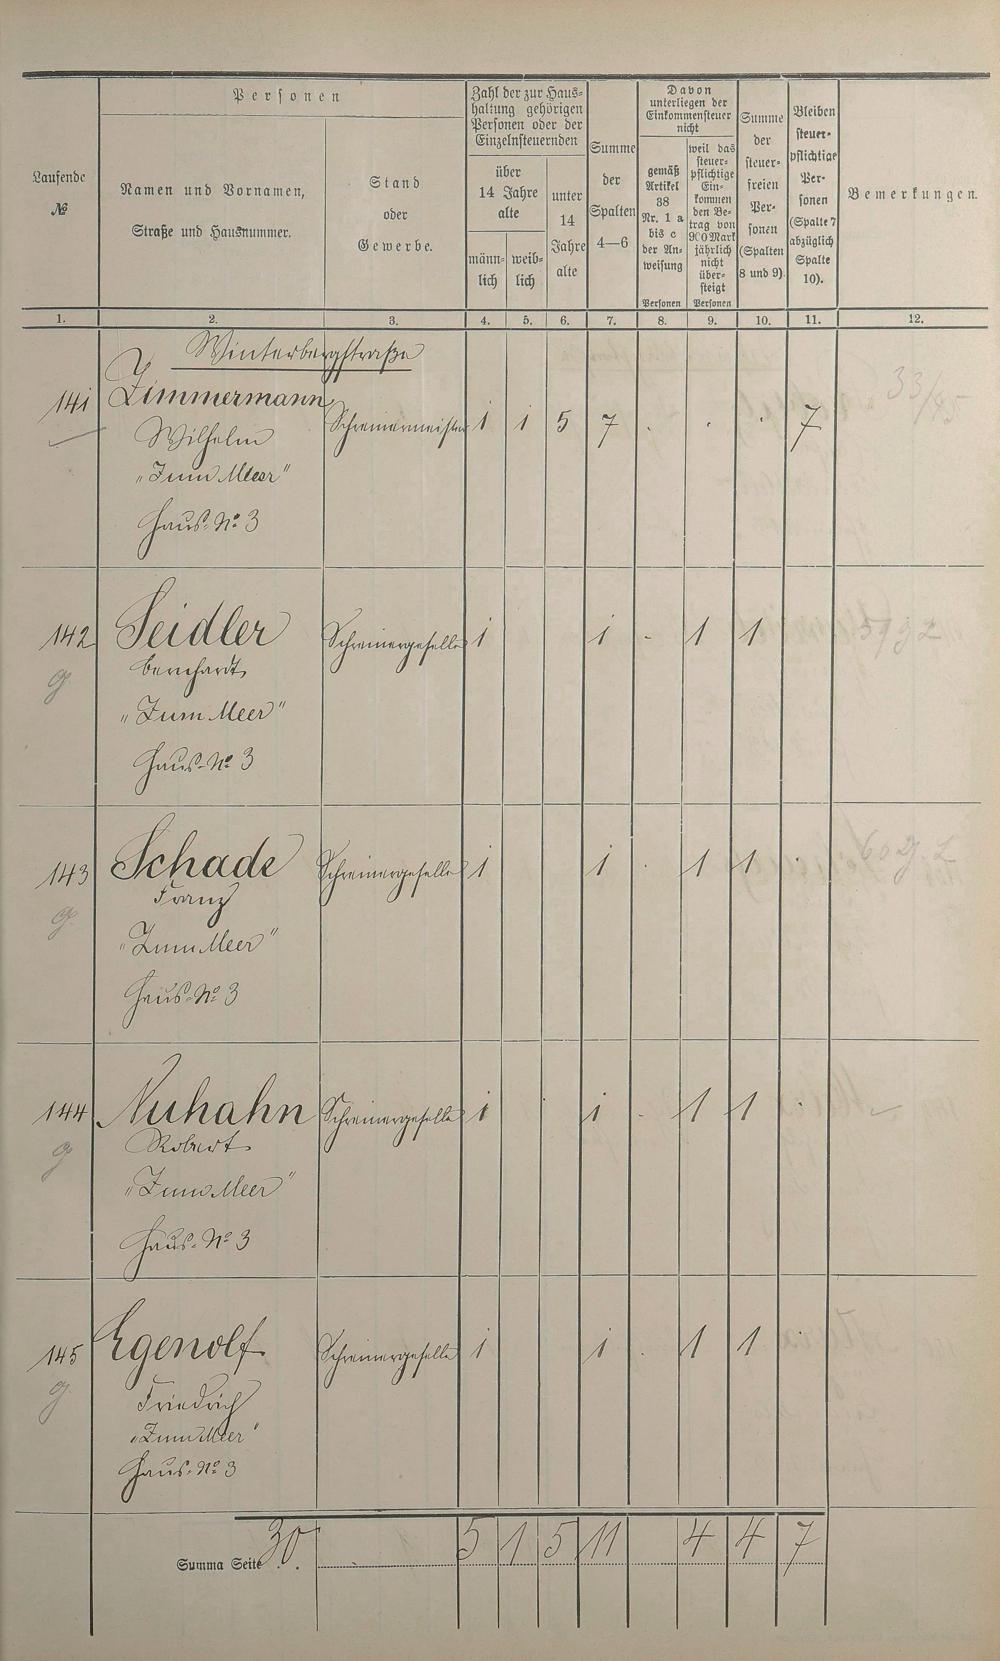 Personen
Zahl der zur Haus-
haltung gehörigen
Personen oder der
Einzelnsteuernden
Davon
unterliegen der
Einkommensteuer
nicht
Laufende
№
Namen und Vornamen,
Straße und Hausnummer.
Stand
oder
Gewerbe.
über
14 Jahre
alte
männ-
lich
weib-
lich
unter
14
Jahre
alte
Summe
der
Spalten
4—6
gemäß
Artikel
38
Nr. 1 a
bis c
der An-
weisung
Personen
weil das
steuer-
pflichtige
Ein-
kommen
den Be-
trag von
900 Mark
jährlich
nicht
über-
steigt
Personen
Summe
der
steuer-
freien
Per-
sonen
(Spalten
8 und 9).
Bleiben
steuer-
pflichtige
Per-
sonen
(Spalte 7
abzüglich
Spalte
10).
Bemerkungen.
1. 2. 3. 4. 5. 6. 7. 8. 9. 10. 11. 12.
Winterbergstraße
141 Zimmermann Schreinermeister 1 1 5 7 . . . 7 33/95
Wilhelm
"Zum Meer"
Haus-No 3
142 Seidler Schreinergeselle 1 1 - 1 1
g. Bernhardt
"Zum Meer"
Haus-No 3
143 Schade Schreinergeselle 1 1 . 1 1 .
g. Franz
"Zum Meer"
Haus-No 3
144 Nuhahn Schreinergeselle 1 1 . 1 1 .
g Robert
"Zum Meer"
Haus-No 3
145 Egenolf Schreinergeselle 1 1 . 1 1 .
g. Friedrich
"Zum Meer"
Haus-No 3
Summa Seite 30 . 5 1 5 11 4 4 7